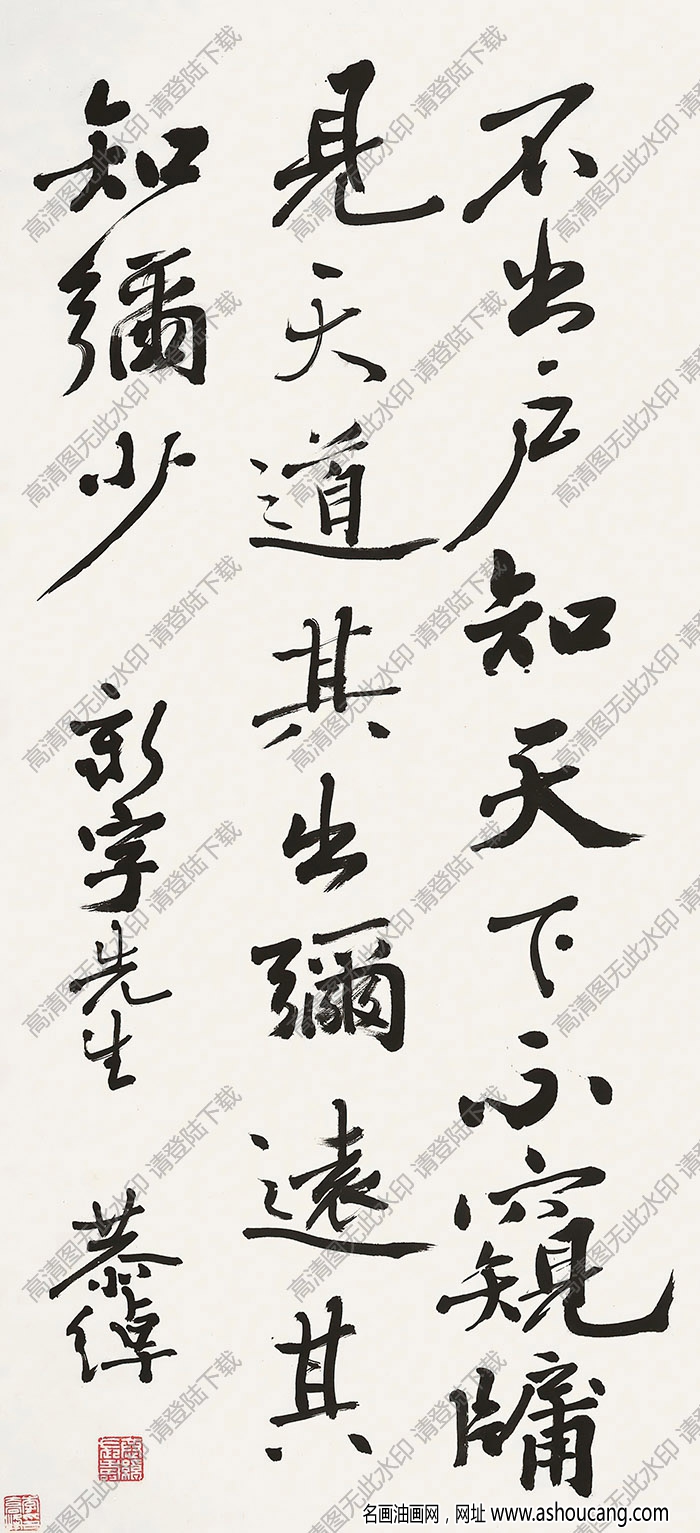 不出户知天下不窺牖
見天道其出彌遠其
知彌少 新宇先生 恭绰
高清图无此水印 请登陆下载
名画油画网，网址 www.ashoucang.com